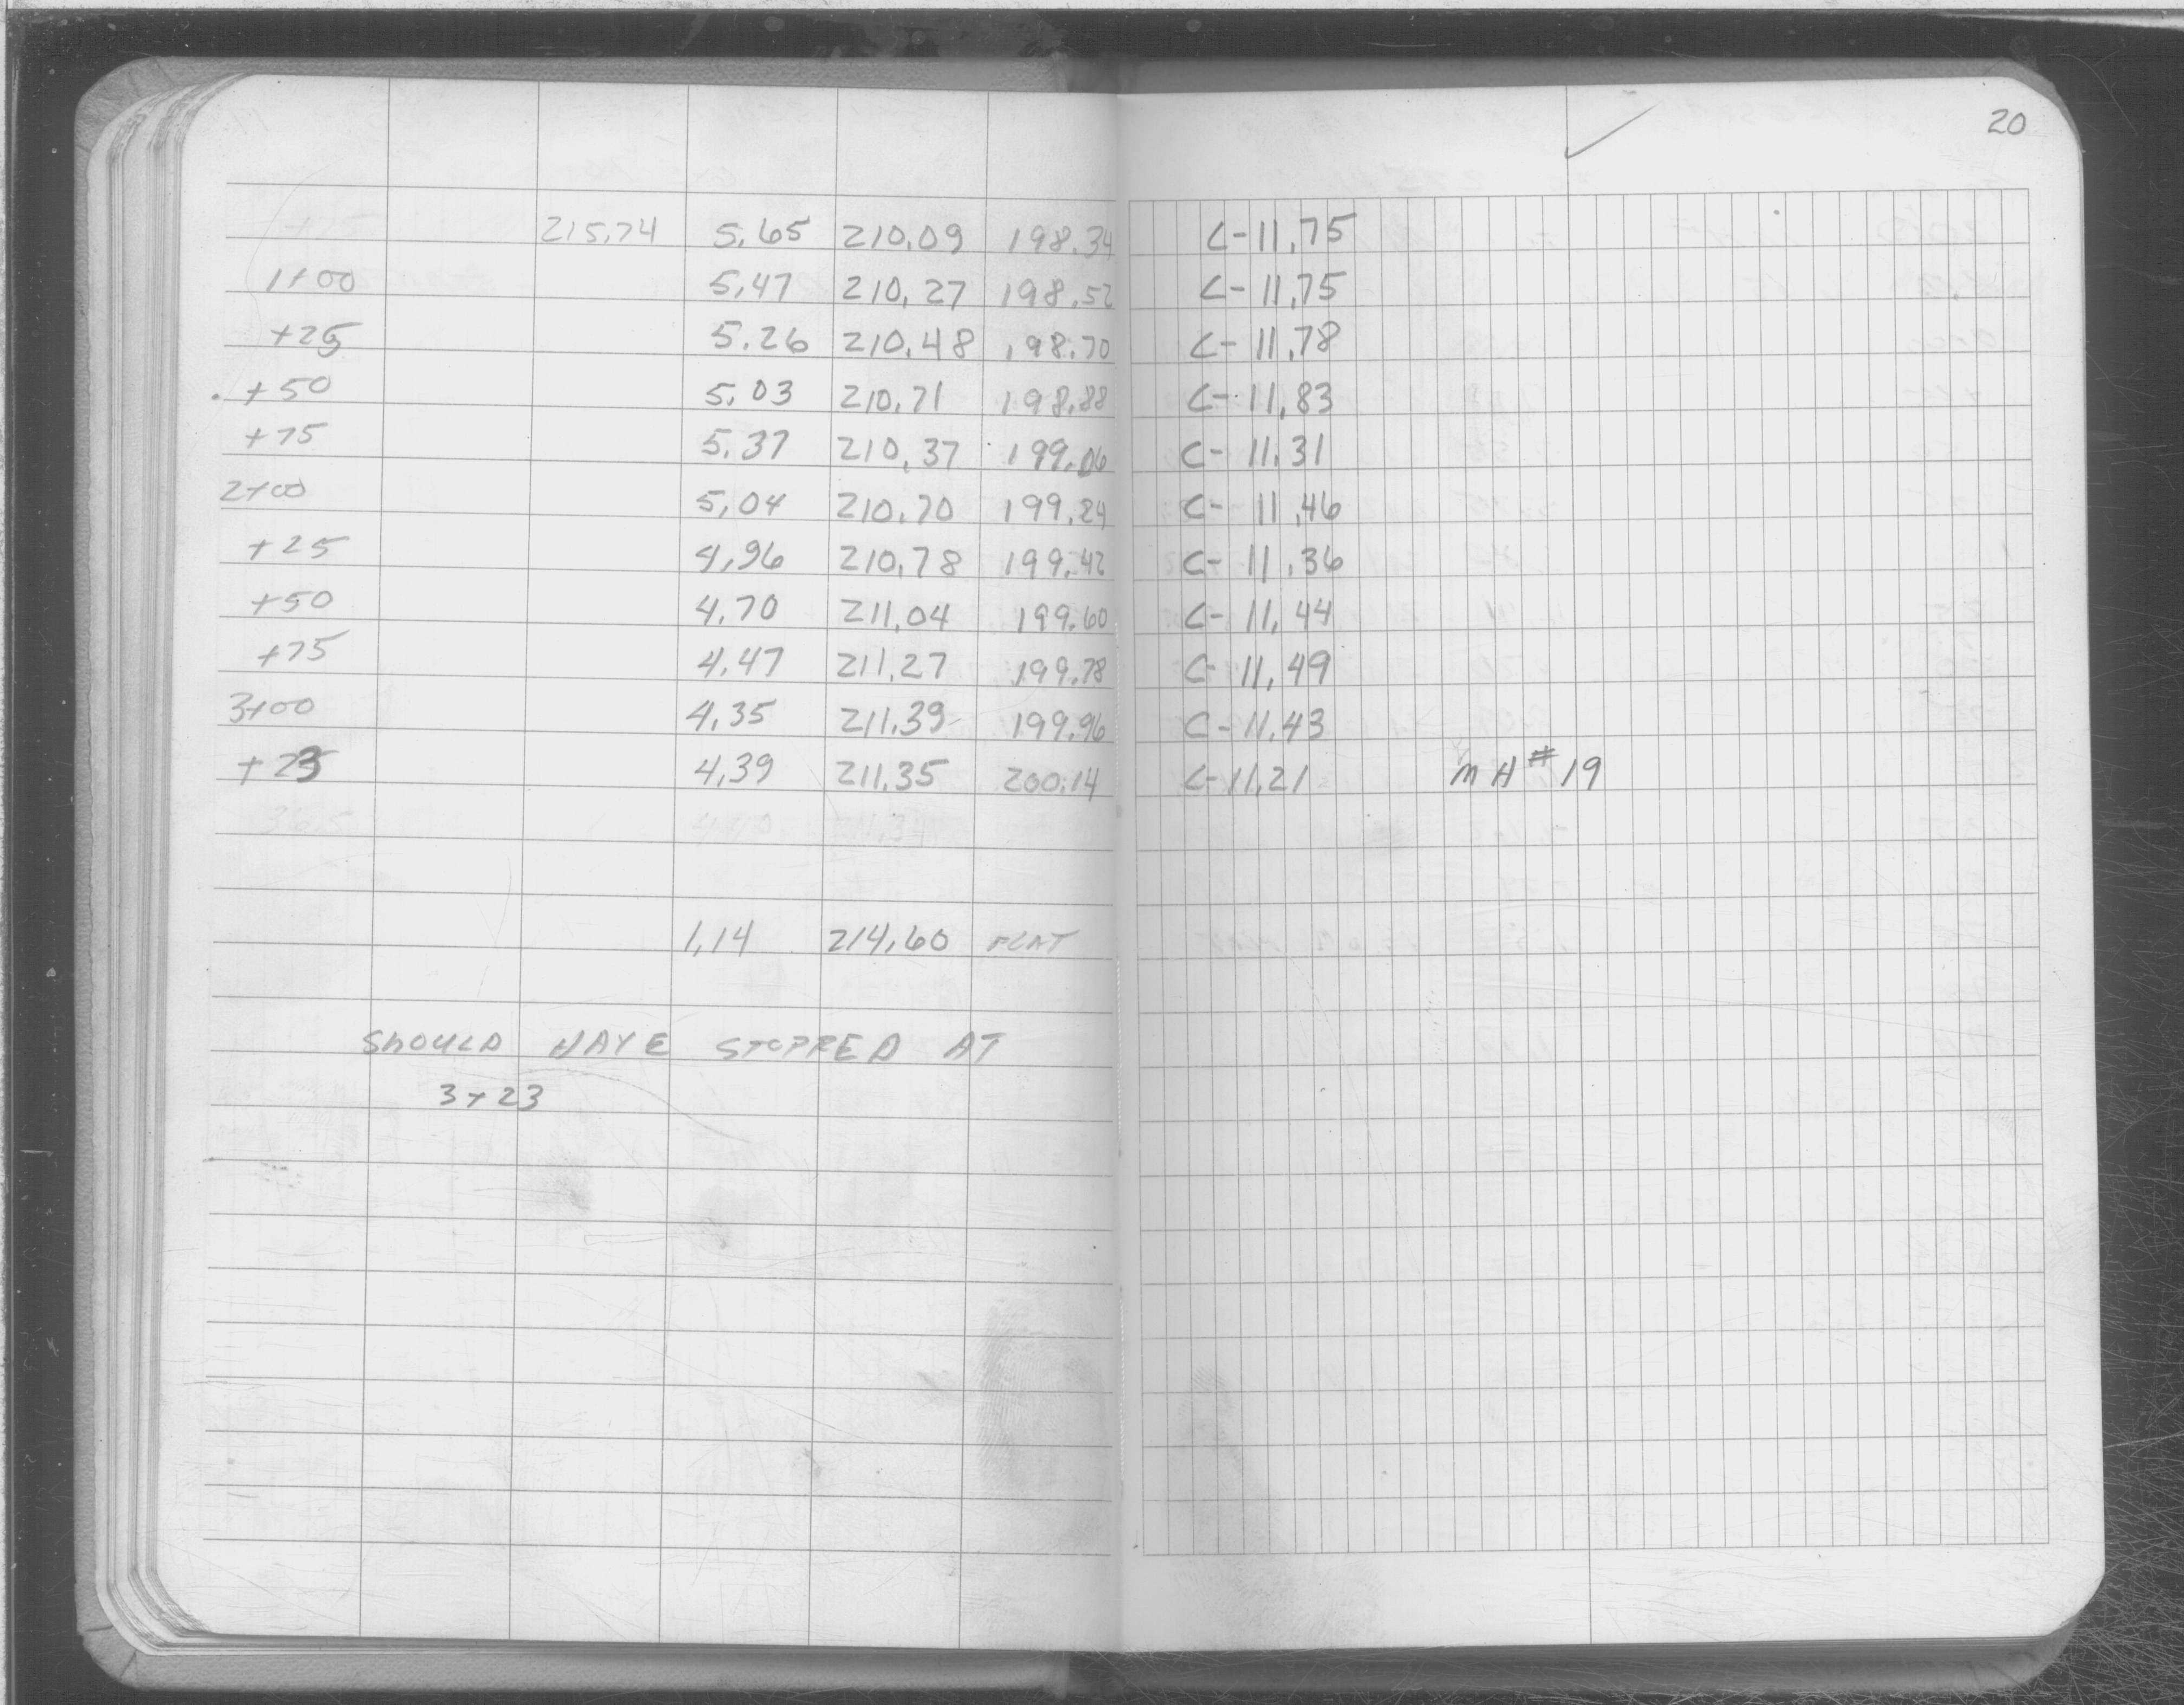 20
215.74 5.65 210.09 198.34 C-11.75
1+00 5.47 210.27 198.52 C-11.75
+25 5.26 210.48 198.70 C-11.78
+50 5.03 210.71 198.88 C-11.83
+75 5.37 210.37 199.06 C-11.31
2+00 5.04 210.70 199.24 C-11.46
+25 4.96 210.78 199.42 C-11.36
+50 4.70 211.04 199.60 C-11.44
+75 4.47 211.27 199.78 C-11.49
3+00 4.35 211.39 199.96 C-11.43
+23 4.39 211.35 200.14 C-11.21 MH #19
1.14 214.60 FLAT
SHOULD HAVE STOPPED AT
3+23